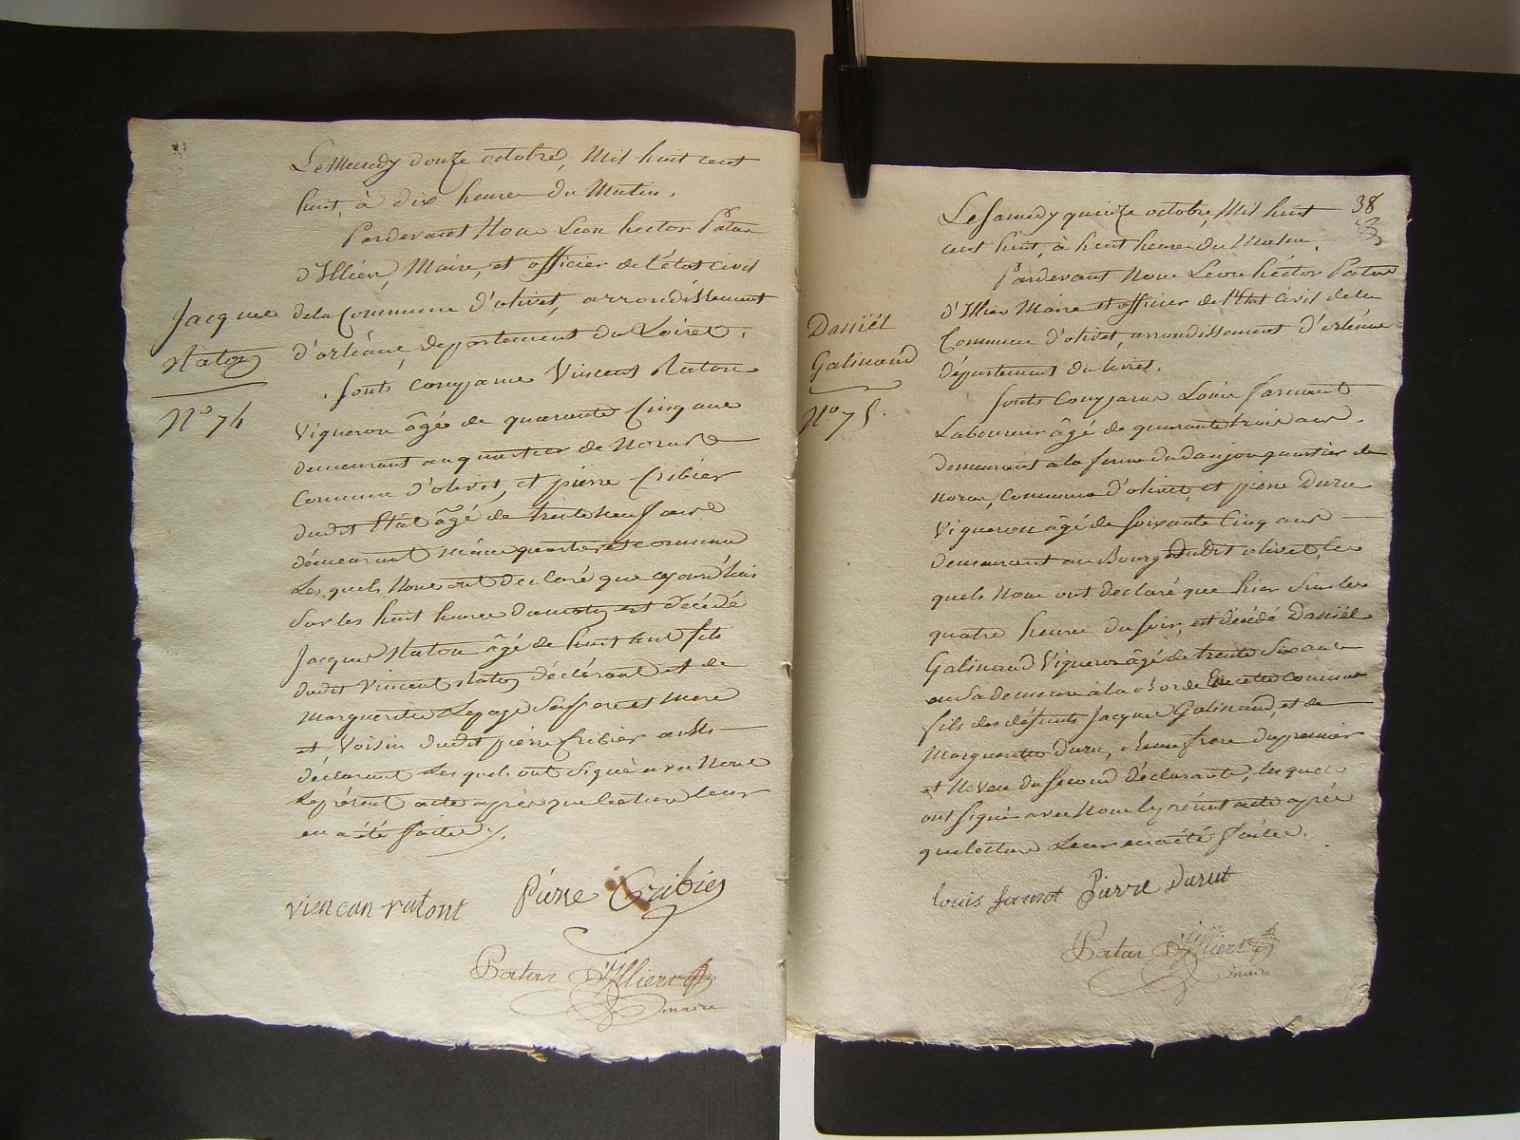 Le Mercredy douze octobre, Mil huit cent
huit, à dix heures du Matin.
Pardevant Nous Leon hector Patas
d'Illiers, Maire, et officier de l'état civil
Jacques
Ratou
N° 74
de la Commune d'olivet, arrondissement
d'orléans, departement du Loiret.
sont comparus Vincent Ratou
Vigneron âgé de quarante Cinq ans
demeurant au quartier de Noras
Commune d'olivet, et pierre Cribier
dudit état âgé de trente neuf ans
demeurant même quartier et commune
Lesquels Nous ont declaré que cejourd'hui
Sur les huit heures du matin est décédé
Jacques Ratou âgé de huit ans fils
dudit Vincent Ratou déclarant et de
Marguerite Lepage Ses pere et mere
et Voisin dudit pierre Cribier aussi
déclarant Lesquels ont Signé avec Nous
Le présent acte après que lecture leur
en a été faite ./.
viencan ratont Pierre Cribier
Patas d'Illiers
maire
38
Le Samedy quinze octobre, Mil huit
cent huit, à huit heures du Matin.
Pardevant Nous Leon héctor Patas
d'Illiers Maire et officier de l'Etat Civil de la
Commune d'olivet, arrondissement d'orléans
département du loiret.
Daniël
Galinand
N° 75.
sont comparus Louis Jarmant
Laboureur âgé de quarante trois ans.
Demeurant à la ferme du Donjon quartier de
Noras, Commune d'olivet, et pierre Duru
Vigneron âgé de soixante Cinq ans
demeurant au Bourg Dudit olivet, les
quels Nous ont declaré que hier Sur les
quatre heures du soir, est décédé Daniël
Galinand Vigneron âgé de trente Six ans
en Sa demeure à la borde En cette Commune
fils des défunts Jacques Galinand, et de
Marguerite Duru, frere du premier
et Neveu du Second déclarants, lesquels
ont Signé avec Nous le présent acte après
que lecture Leur en a été faite.
louis Jamot Pierre Durut
Patas d'Illiers
maire